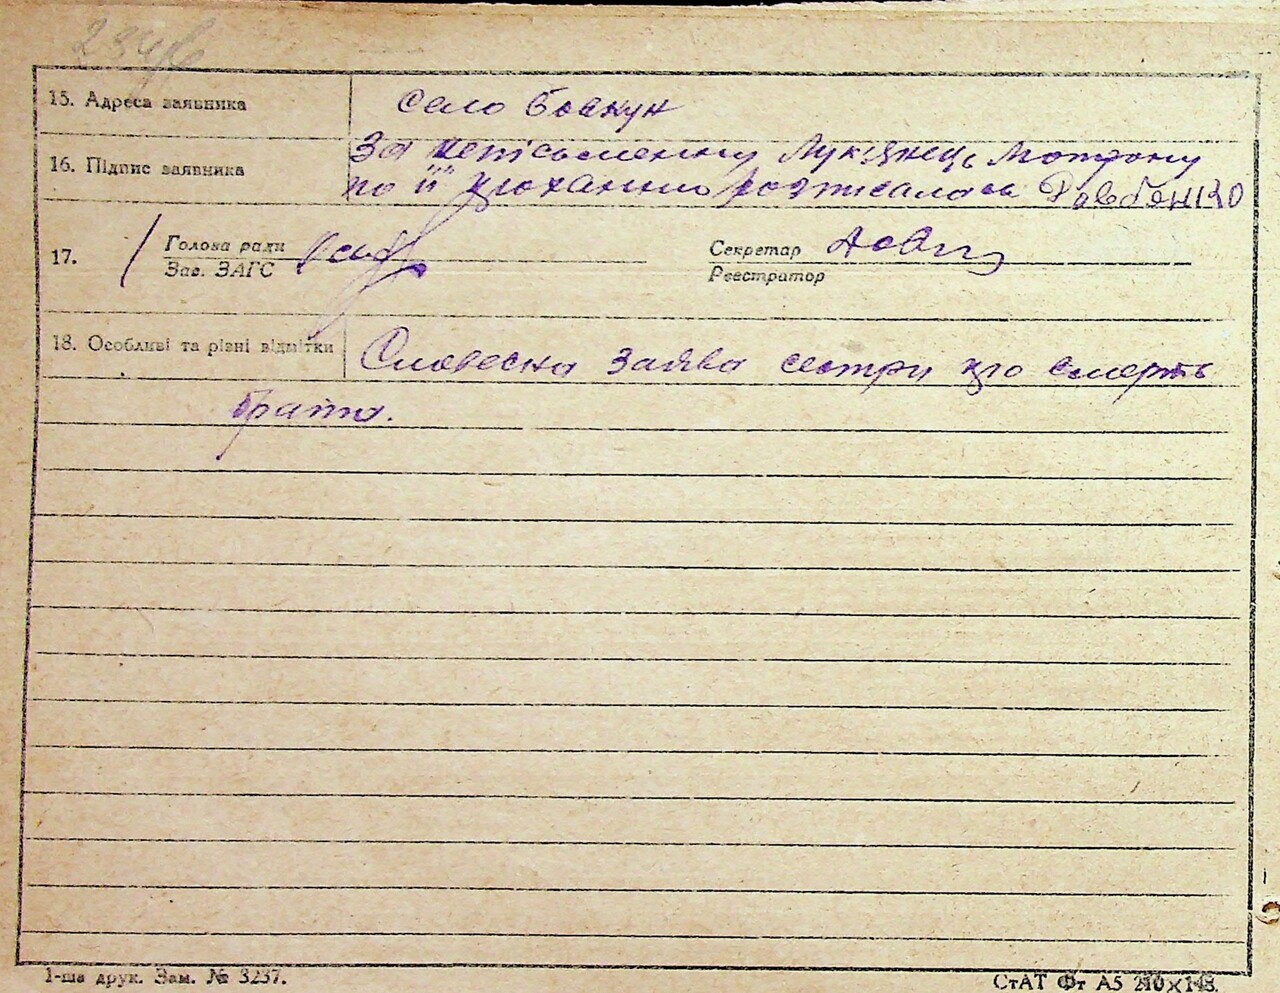 234
15. Адреса заявника село Бовкун
16. Підпис заявника За неписьменну Лук'янець Мотрону
по її проханню розписалась
17. Голова ради Секретар
Зав. ЗАГС Реєстратор
18. Особливі та різні відмітки Словесна заява сестри про смерть
брата.
1-ша друк. Зам. № 3237. СтАТ Фт А5 210×148.